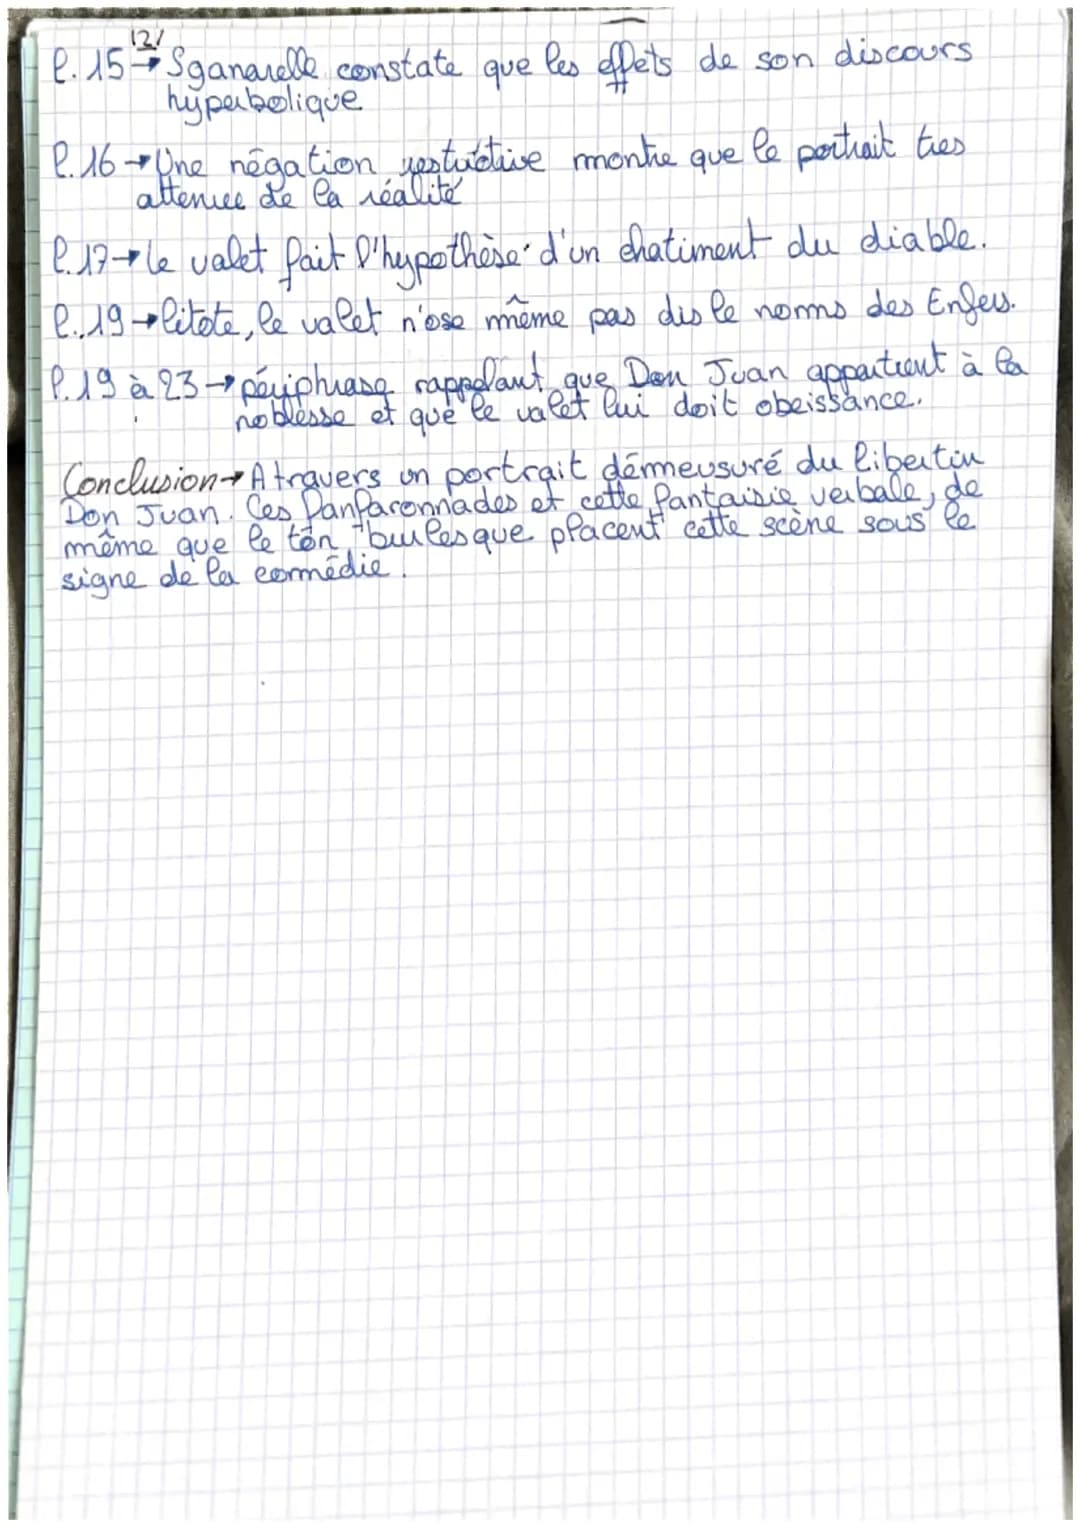 12/
l.15→Sganarelle constate que les effets de son discours
hyperbolique
l.16→Une négation restrictive montre que le portrait tres
attenuee de la réalité
l.17→le valet fait l'hypothèse d'un chatiment du diable.
l.19→litote, le valet n'ose même pas dis le noms des Enfers.
l.19 à 23→périphrase rappelant que Don Juan appartient à la
noblesse et que le valet lui doit obeissance.
Conclusion→A travers un portrait démeusuré du libertin
Don Juan. Ces fanfaronnades et cette fantaisie verbale, de
même que le ton burlesque placent cette scène sous le
signe de la comédie.